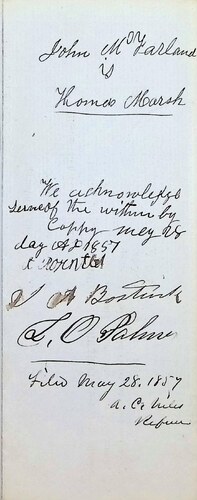 John McFarland
vs
Thomas Marsh
We acknowledge
servce of the within by
Coppy May 28
day AD 1857
A Bostick
L. O Palmer
Filed May 28, 1857
A. C. Niles
Referee